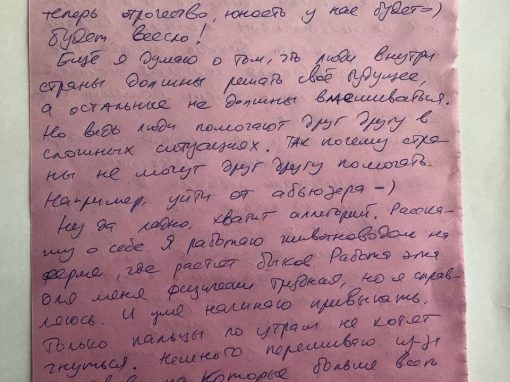 теперь отрочество, юность у нас будет=)
будет весело!
Ещё я думаю о том, что люди внутри
страны должны решать своё будущее,
а остальные не должны вмешиваться.
Но ведь люди помогают друг другу в
сложных ситуациях. Так почему стра-
ны не могут друг другу помогать.
Например, уйти от абьюзера =)
Ну да ладно. хватит аллегорий. Расска-
жу о себе. Я работаю животноводом на
ферме, где растят быков. Работа эта
для меня физически трудная, но я справ-
ляюсь. И уже начинаю привыкать.
Только пальцы по утрам не хотят
гнуться. Немного переживаю из-за
на которые больше всего